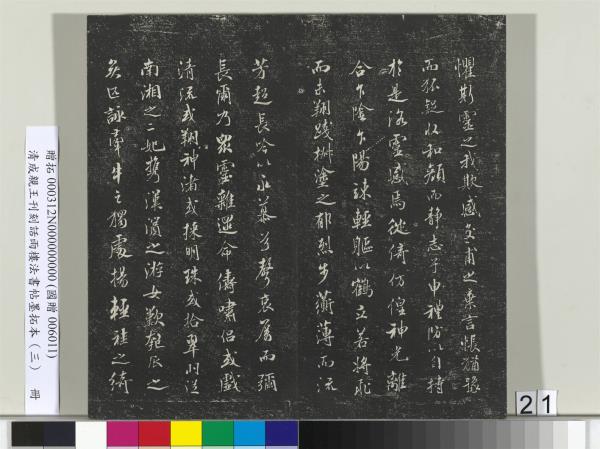 懼斯靈之我欺感交甫之棄言悵猶豫
而狐疑收和顏而靜志兮申禮防以自持
於是洛靈感焉徙倚仿偟神光離
合乍陰乍陽竦輕軀以鶴立若將飛
而未翔踐椒塗之郁烈步蘅薄而流
芳超長吟以永慕兮聲哀厲而彌
長爾乃眾靈雜遝命儔嘯侶或戲
清流或翔神渚或採明珠或拾翠羽從
南湘之二妃攜漢濱之游女歎匏瓜之
無匹詠牽牛之獨處揚輕袿之綺
贈拓 000312N000000000 (國贈 006011)
清成親王刊刻話雨樓法書帖墨拓本（三） 冊
21